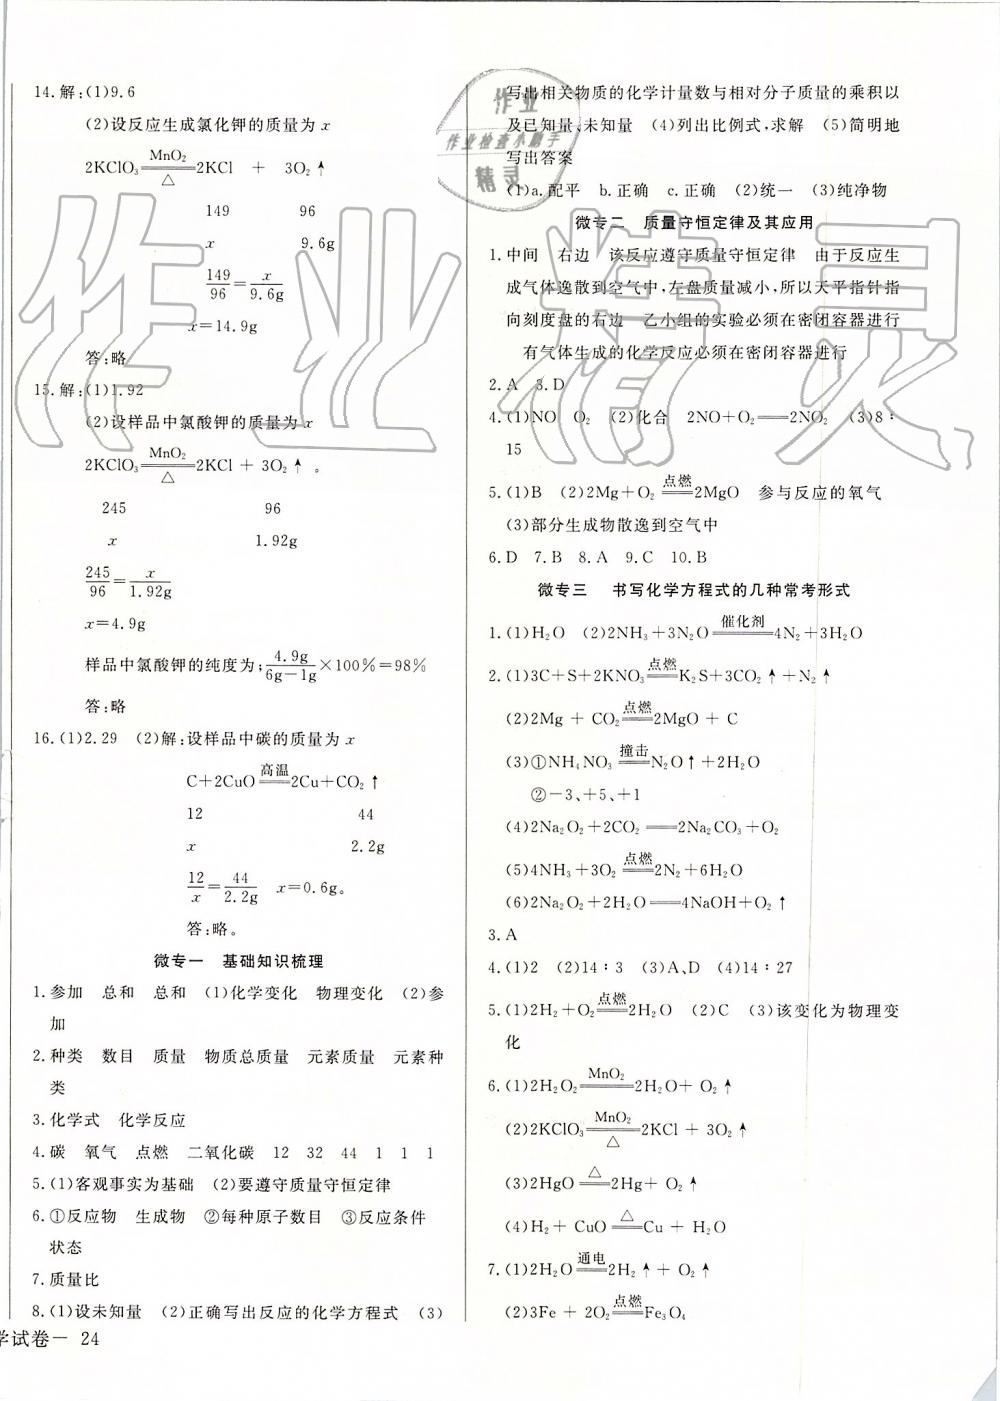 14.解:(1)9.6
(2)设反应生成氯化钾的质量为x
2KClO₃ =MnO₂/△= 2KCl + 3O₂↑
149 96
x 9.6g
149/96=x/9.6g
x=14.9g
答:略
15.解:(1)1.92
(2)设样品中氯酸钾的质量为x
2KClO₃ =MnO₂/△= 2KCl + 3O₂↑。
245 96
x 1.92g
245/96=x/1.92g
x=4.9g
样品中氯酸钾的纯度为;4.9g/6g-1g×100%=98%
答:略
16.(1)2.29 (2)解:设样品中碳的质量为x
C+2CuO =高温= 2Cu+CO₂↑
12 44
x 2.2g
12/x=44/2.2g x=0.6g。
答:略。
微专一 基础知识梳理
1.参加 总和 总和 (1)化学变化 物理变化 (2)参
加
2.种类 数目 质量 物质总质量 元素质量 元素种
类
3.化学式 化学反应
4.碳 氧气 点燃 二氧化碳 12 32 44 1 1 1
5.(1)客观事实为基础 (2)要遵守质量守恒定律
6.①反应物 生成物 ②每种原子数目 ③反应条件
状态
7.质量比
8.(1)设未知量 (2)正确写出反应的化学方程式 (3)
学试卷— 24
写出相关物质的化学计量数与相对分子质量的乘积以
及已知量、未知量 (4)列出比例式,求解 (5)简明地
写出答案
(1)a.配平 b.正确 c.正确 (2)统一 (3)纯净物
微专二 质量守恒定律及其应用
1.中间 右边 该反应遵守质量守恒定律 由于反应生
成气体逸散到空气中,左盘质量减小,所以天平指针指
向刻度盘的右边 乙小组的实验必须在密闭容器进行
有气体生成的化学反应必须在密闭容器进行
2.A 3.D
4.(1)NO O₂ (2)化合 2NO+O₂══2NO₂ (3)8∶
15
5.(1)B (2)2Mg+O₂ =点燃= 2MgO 参与反应的氧气
(3)部分生成物散逸到空气中
6.D 7.B 8.A 9.C 10.B
微专三 书写化学方程式的几种常考形式
1.(1)H₂O (2)2NH₃+3N₂O =催化剂= 4N₂+3H₂O
2.(1)3C+S+2KNO₃ =点燃= K₂S+3CO₂↑+N₂↑
(2)2Mg + CO₂ =点燃= 2MgO + C
(3)①NH₄NO₃ =撞击= N₂O↑+2H₂O
②-3、+5、+1
(4)2Na₂O₂+2CO₂══2Na₂CO₃+O₂
(5)4NH₃+3O₂ =点燃= 2N₂+6H₂O
(6)2Na₂O₂+2H₂O══4NaOH+O₂↑
3.A
4.(1)2 (2)14∶3 (3)A、D (4)14∶27
5.(1)2H₂+O₂ =点燃= 2H₂O (2)C (3)该变化为物理变
化
6.(1)2H₂O₂ =MnO₂= 2H₂O+ O₂↑
(2)2KClO₃ =MnO₂/△= 2KCl + 3O₂↑
(3)2HgO =△= 2Hg+ O₂↑
(4)H₂+ CuO =△= Cu + H₂O
7.(1)2H₂O =通电= 2H₂↑+ O₂↑
(2)3Fe + 2O₂ =点燃= Fe₃O₄
作业
作业检查小助手
精灵
作业精灵